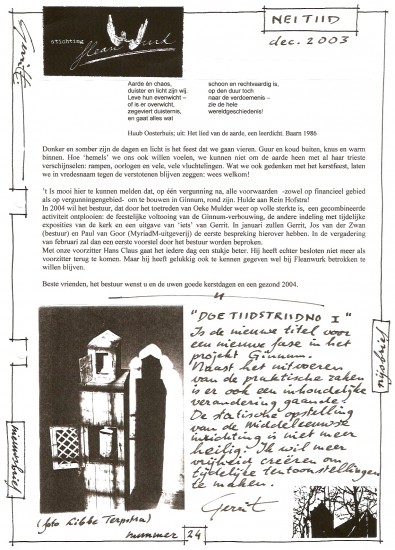 NEITIID
dec. 2003
stichting
fleanwurk
Aarde én chaos,
duister en licht zijn wij.
Leve hun evenwicht –
of is er overwicht,
zegeviert duisternis,
en gaat alles wat
schoon en rechtvaardig is,
op den duur toch
naar de verdoemenis –
zie de hele
wereldgeschiedenis!
Huub Oosterhuis; uit: Het lied van de aarde, een leerdicht. Baarn 1986
Donker en somber zijn de dagen en licht is het feest dat we gaan vieren. Guur en koud buiten, knus en warm
binnen. Hoe ‘hemels’ we ons ook willen voelen, we kunnen niet om de aarde heen met al haar trieste
verschijnselen: rampen, oorlogen en vele, vele vluchtelingen. Wat we ook gedenken met het kerstfeest, laten
we in vredesnaam tegen de verstotenen blijven zeggen: wees welkom!
’t Is mooi hier te kunnen melden dat, op één vergunning na, alle voorwaarden -zowel op financieel gebied
als op vergunningengebied- om te bouwen in Ginnum, rond zijn. Hulde aan Rein Hofstra!
In 2004 wil het bestuur, dat door het toetreden van Oeke Mulder weer op volle sterkte is, een gecombineerde
activiteit ontplooien: de feestelijke voltooing van de Ginnum-verbouwing, de andere indeling met tijdelijke
exposities van de kerk en een uitgave van ‘iets’ van Gerrit. In januari zullen Gerrit, Jos van der Zwan
(bestuur) en Paul van Goor (MyriadM-uitgeverij) de eerste bespreking hierover hebben. In de vergadering
van februari zal dan een eerste voorstel door het bestuur worden besproken.
Met onze voorzitter Hans Claus gaat het iedere dag een stukje beter. Hij heeft echter besloten niet meer als
voorzitter terug te komen. Maar hij heeft gelukkig ook te kennen gegeven wel bij Fleanwurk betrokken te
willen blijven.
Beste vrienden, het bestuur wenst u en de uwen goede kerstdagen en een gezond 2004.
"DGE TIIDSTRIIDNO I"
Is de nieuwe titel voor
een nieuwe fase in het
projekt Ginnum.
Naast het uitvoeren
van de praktische zaken
is er ook een inhoudelijke
verandering gaande.
De statische opstelling
van de Middeleeuwse
inrichting is niet meer
heilig. Ik wil meer
vrijheid creëren om
tijdelijke tentoonstellingen
te maken.
Gerrit
nijsbrief
nieuwsbrief
(foto Libbe Terpstra)
nummer 24